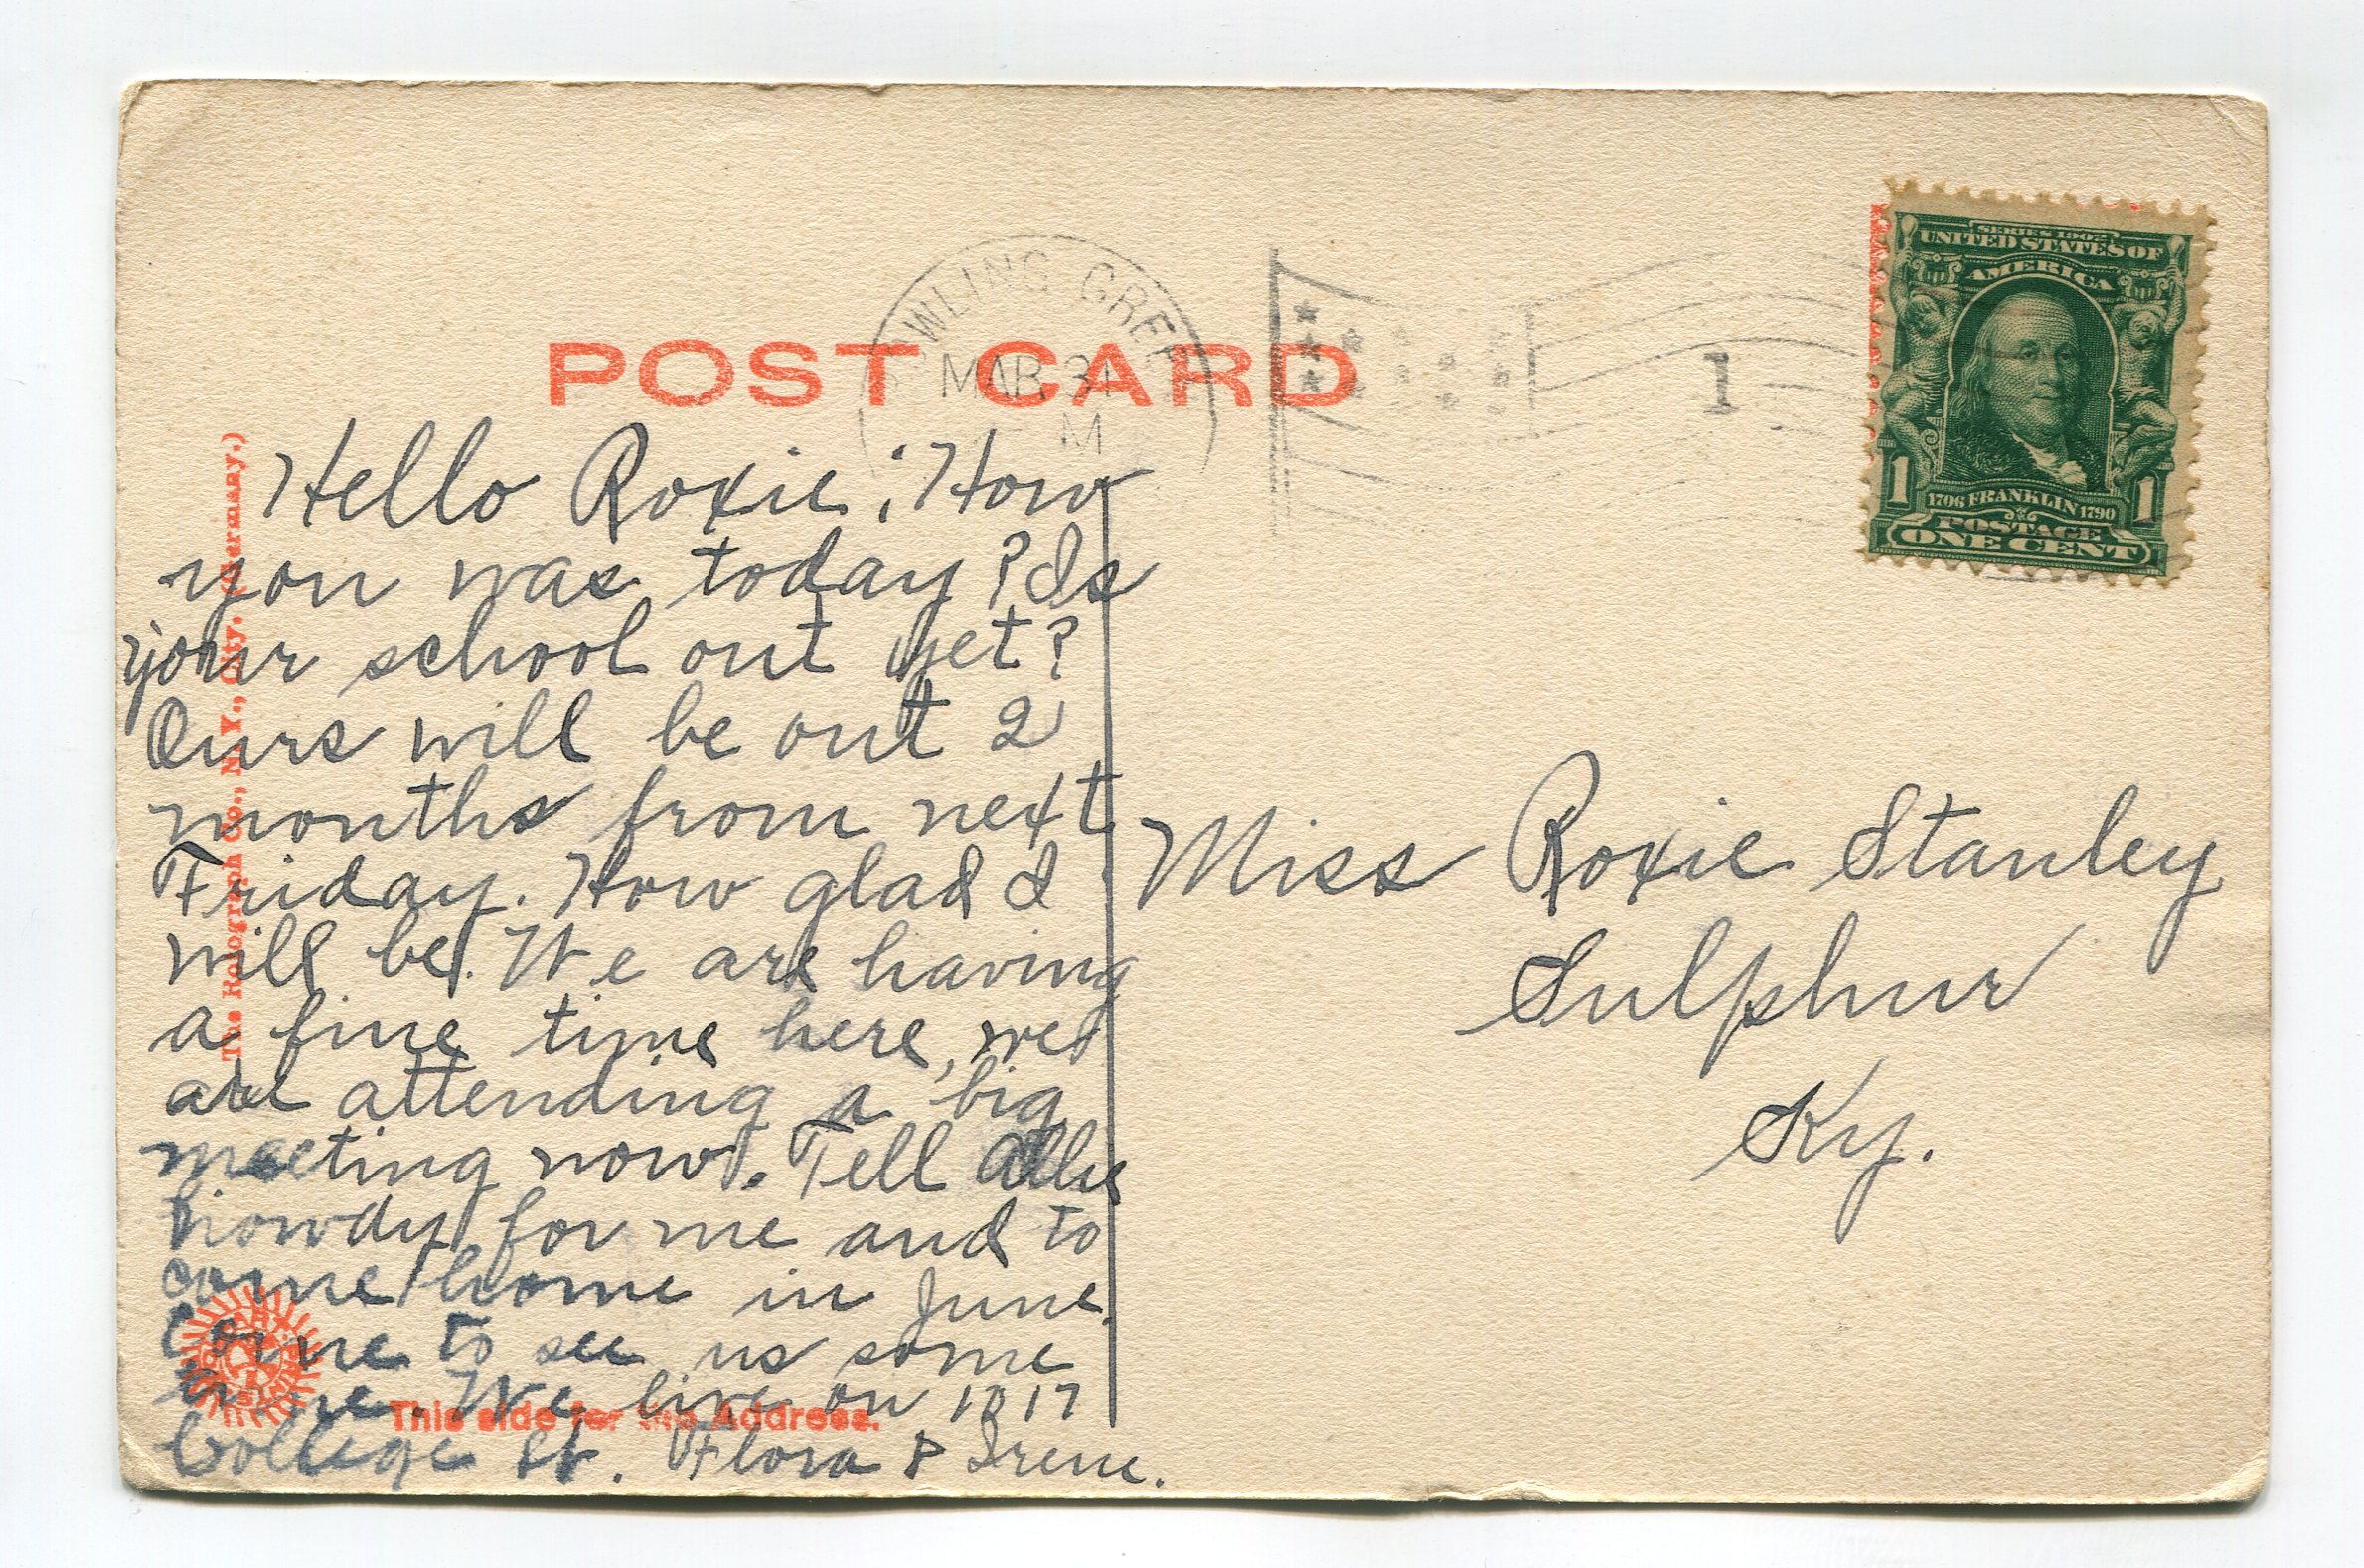 POST CARD
BOWLING GREE
MAR 31
M
1
SERIES 1902
UNITED STATES OF
AMERICA
1706 FRANKLIN 1790
POSTAGE
ONE CENT
1 1
The Rotograph Co., N. Y., City. (Germany.)
Hello Roxie; How
you was today? Is
your school out yet?
Ours will be out 2
months from next
Friday. How glad I
will be. We are having
a fine time here, we
are attending a big
meeting now. Tell Allie
howdy for me and to
come home in June.
Come to see us some
time. We live on 1217
College St. Flora & Irene.
This side for the Address.
Miss Roxie Stanley
Sulphur
Ky.